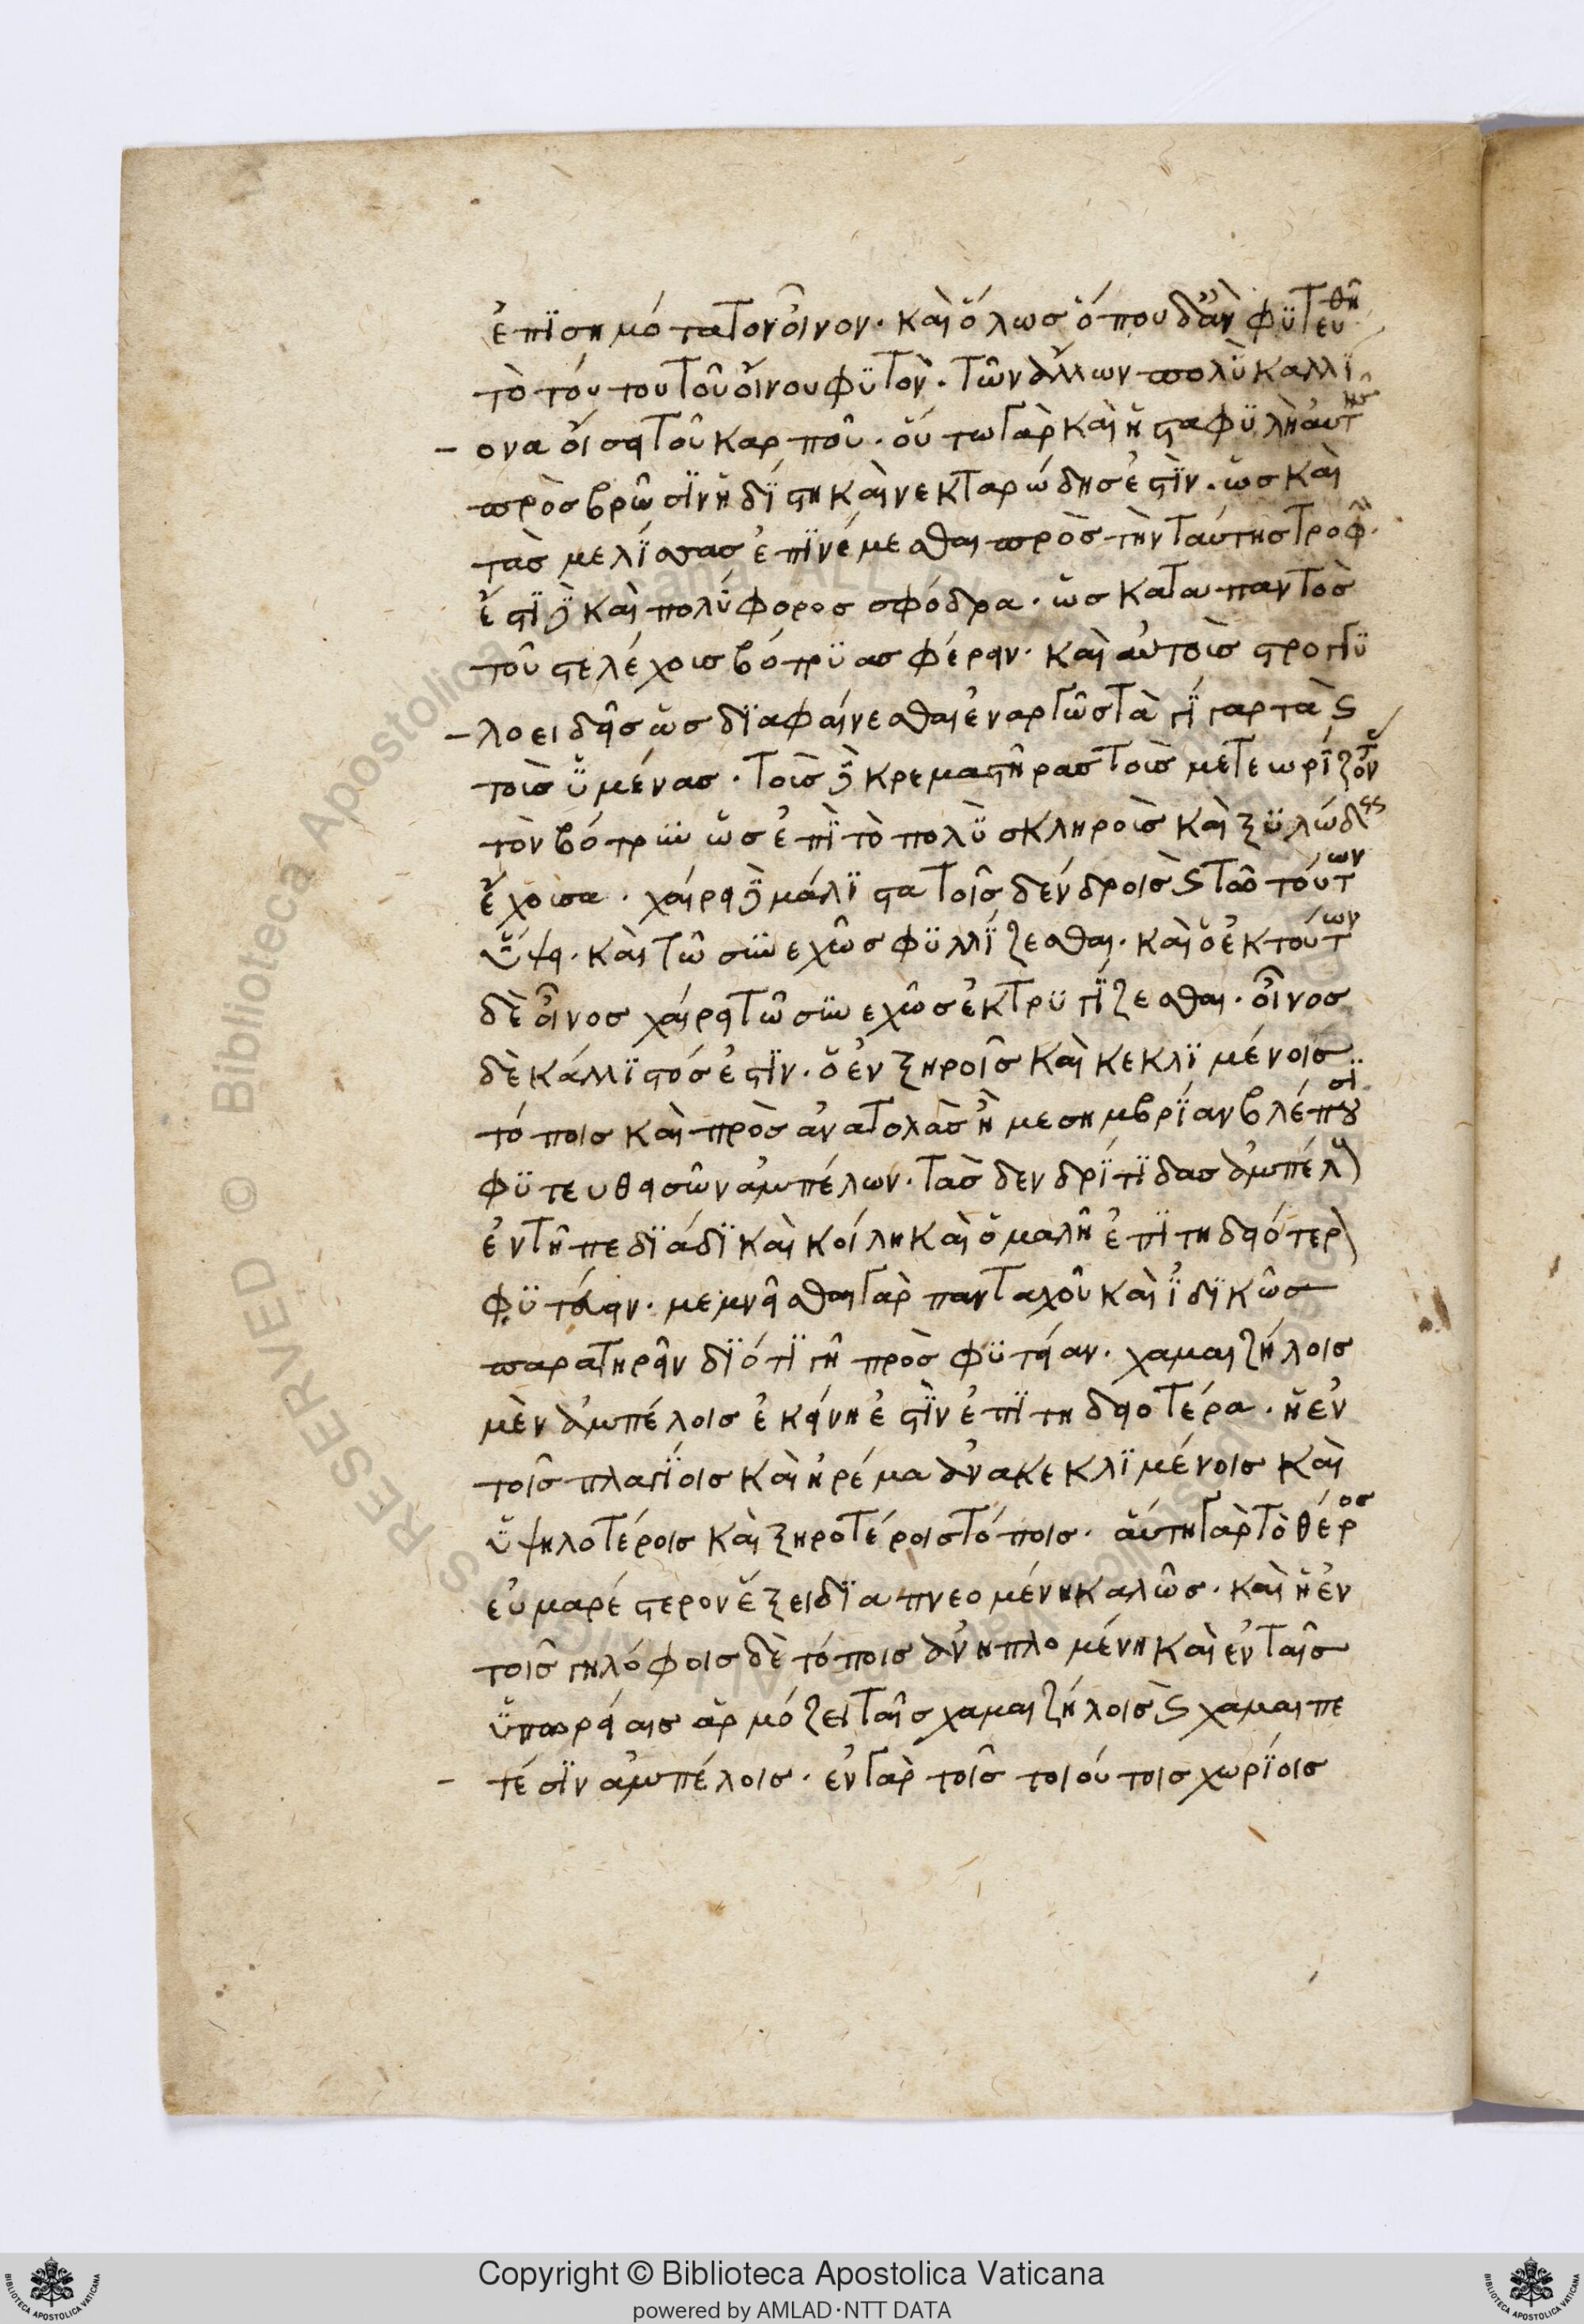 ἐπϊσημότατον οἶνον· καὶ ὅλως ὅπου δἂν φϋτευθῆ
τὸ τούτου τοῦ οἴνου φϋτὸν· τῶν ἄλλων πολὺ καλλϊ
-ονα οἴσει τοῦ καρποῦ· οὕτω γὰρ καὶ ἡ σταφϋλὴ αὐτῆς
πρὸς βρῶσϊν ἡδΐστη καὶ νεκταρώδης ἐστϊν· ὡς καὶ
τὰς μελΐσσας ἐπϊνέμεσθαι πρὸς τὴν ταύτης τροφὴν·
ἔστϊ δὲ καὶ πολΰφορος σφόδρα· ὡς κατα παντὸς
τοῦ στελέχους βότρϋας φέρειν· καὶ αὐτοὺς στρογγϋ
-λοειδεῖς ὡς δϊαφαίνεσθαι ἐναργῶς τὰ γΐγαρτα κατὰ
τοὺς ὑμένας· τοὺς δὲ κρεμαστῆρας τοὺς μετεωρΐζοντας
τὸν βότρϋν ὡς ἐπϊ τὸ πολὺ σκληροὺς καὶ ξϋλώδεις
ἔχουσα· χαίρει δὲ μάλϊστα τοῖς δένδροις καὶ τῶ τούτων
ὕψει· καὶ τῶ σϋνεχῶς φϋλλΐζεσθαι· καὶ ὁ ἐκ τούτων
δὲ οἶνος χαίρει τῶ σϋνεχῶς ἐκτρϋγΐζεσθαι· οἶνος
δὲ κάλλϊστός ἐστϊν· ὁ ἐν ξηροῖς καὶ κεκλϊμένοις
τόποις καὶ πρὸς ἀνατολὰς ἢ μεσημβρΐαν βλέπουσϊ
φϋτευθεισῶν ἀμπέλων· τὰς δενδρΐτϊδας ἀμπέλους
ἐν τῆ πεδϊάδϊ καὶ κοίλη καὶ ὁμαλῆ ἐπϊτηδειότερον
φϋτεύειν· μεμνῆσθαι γὰρ πανταχοῦ καὶ ἰδϊκῶς
παρατηρεῖν δϊότϊ γῆ πρὸς φϋτείαν· χαμαιζήλοις
μὲν ἀμπέλοις ἐκείνη ἐστϊν ἐπϊτηδειοτέρα· ἡ ἐν
τοῖς πλαγΐοις καὶ ἠρέμα ἀνακεκλϊμένοις καὶ
ὑψηλοτέροις καὶ ξηροτέροις τόποις· αὕτη γὰρ τὸ θέρος
εὐμαρέστερον ἕξει δϊαπνεομένη καλῶς· καὶ ἡ ἐν
τοῖς γηλόφοις δὲ τόποις ἀνηπλομένη καὶ ἐν ταῖς
ὑπωρείαις ἁρμόζει ταῖς χαμαιζήλοις καὶ χαμαιπε
- τέσϊν ἀμπέλοις· ἐν γὰρ τοῖς τοιούτοις χωρΐοις
Copyright © Biblioteca Apostolica Vaticana
powered by AMLAD·NTT DATA